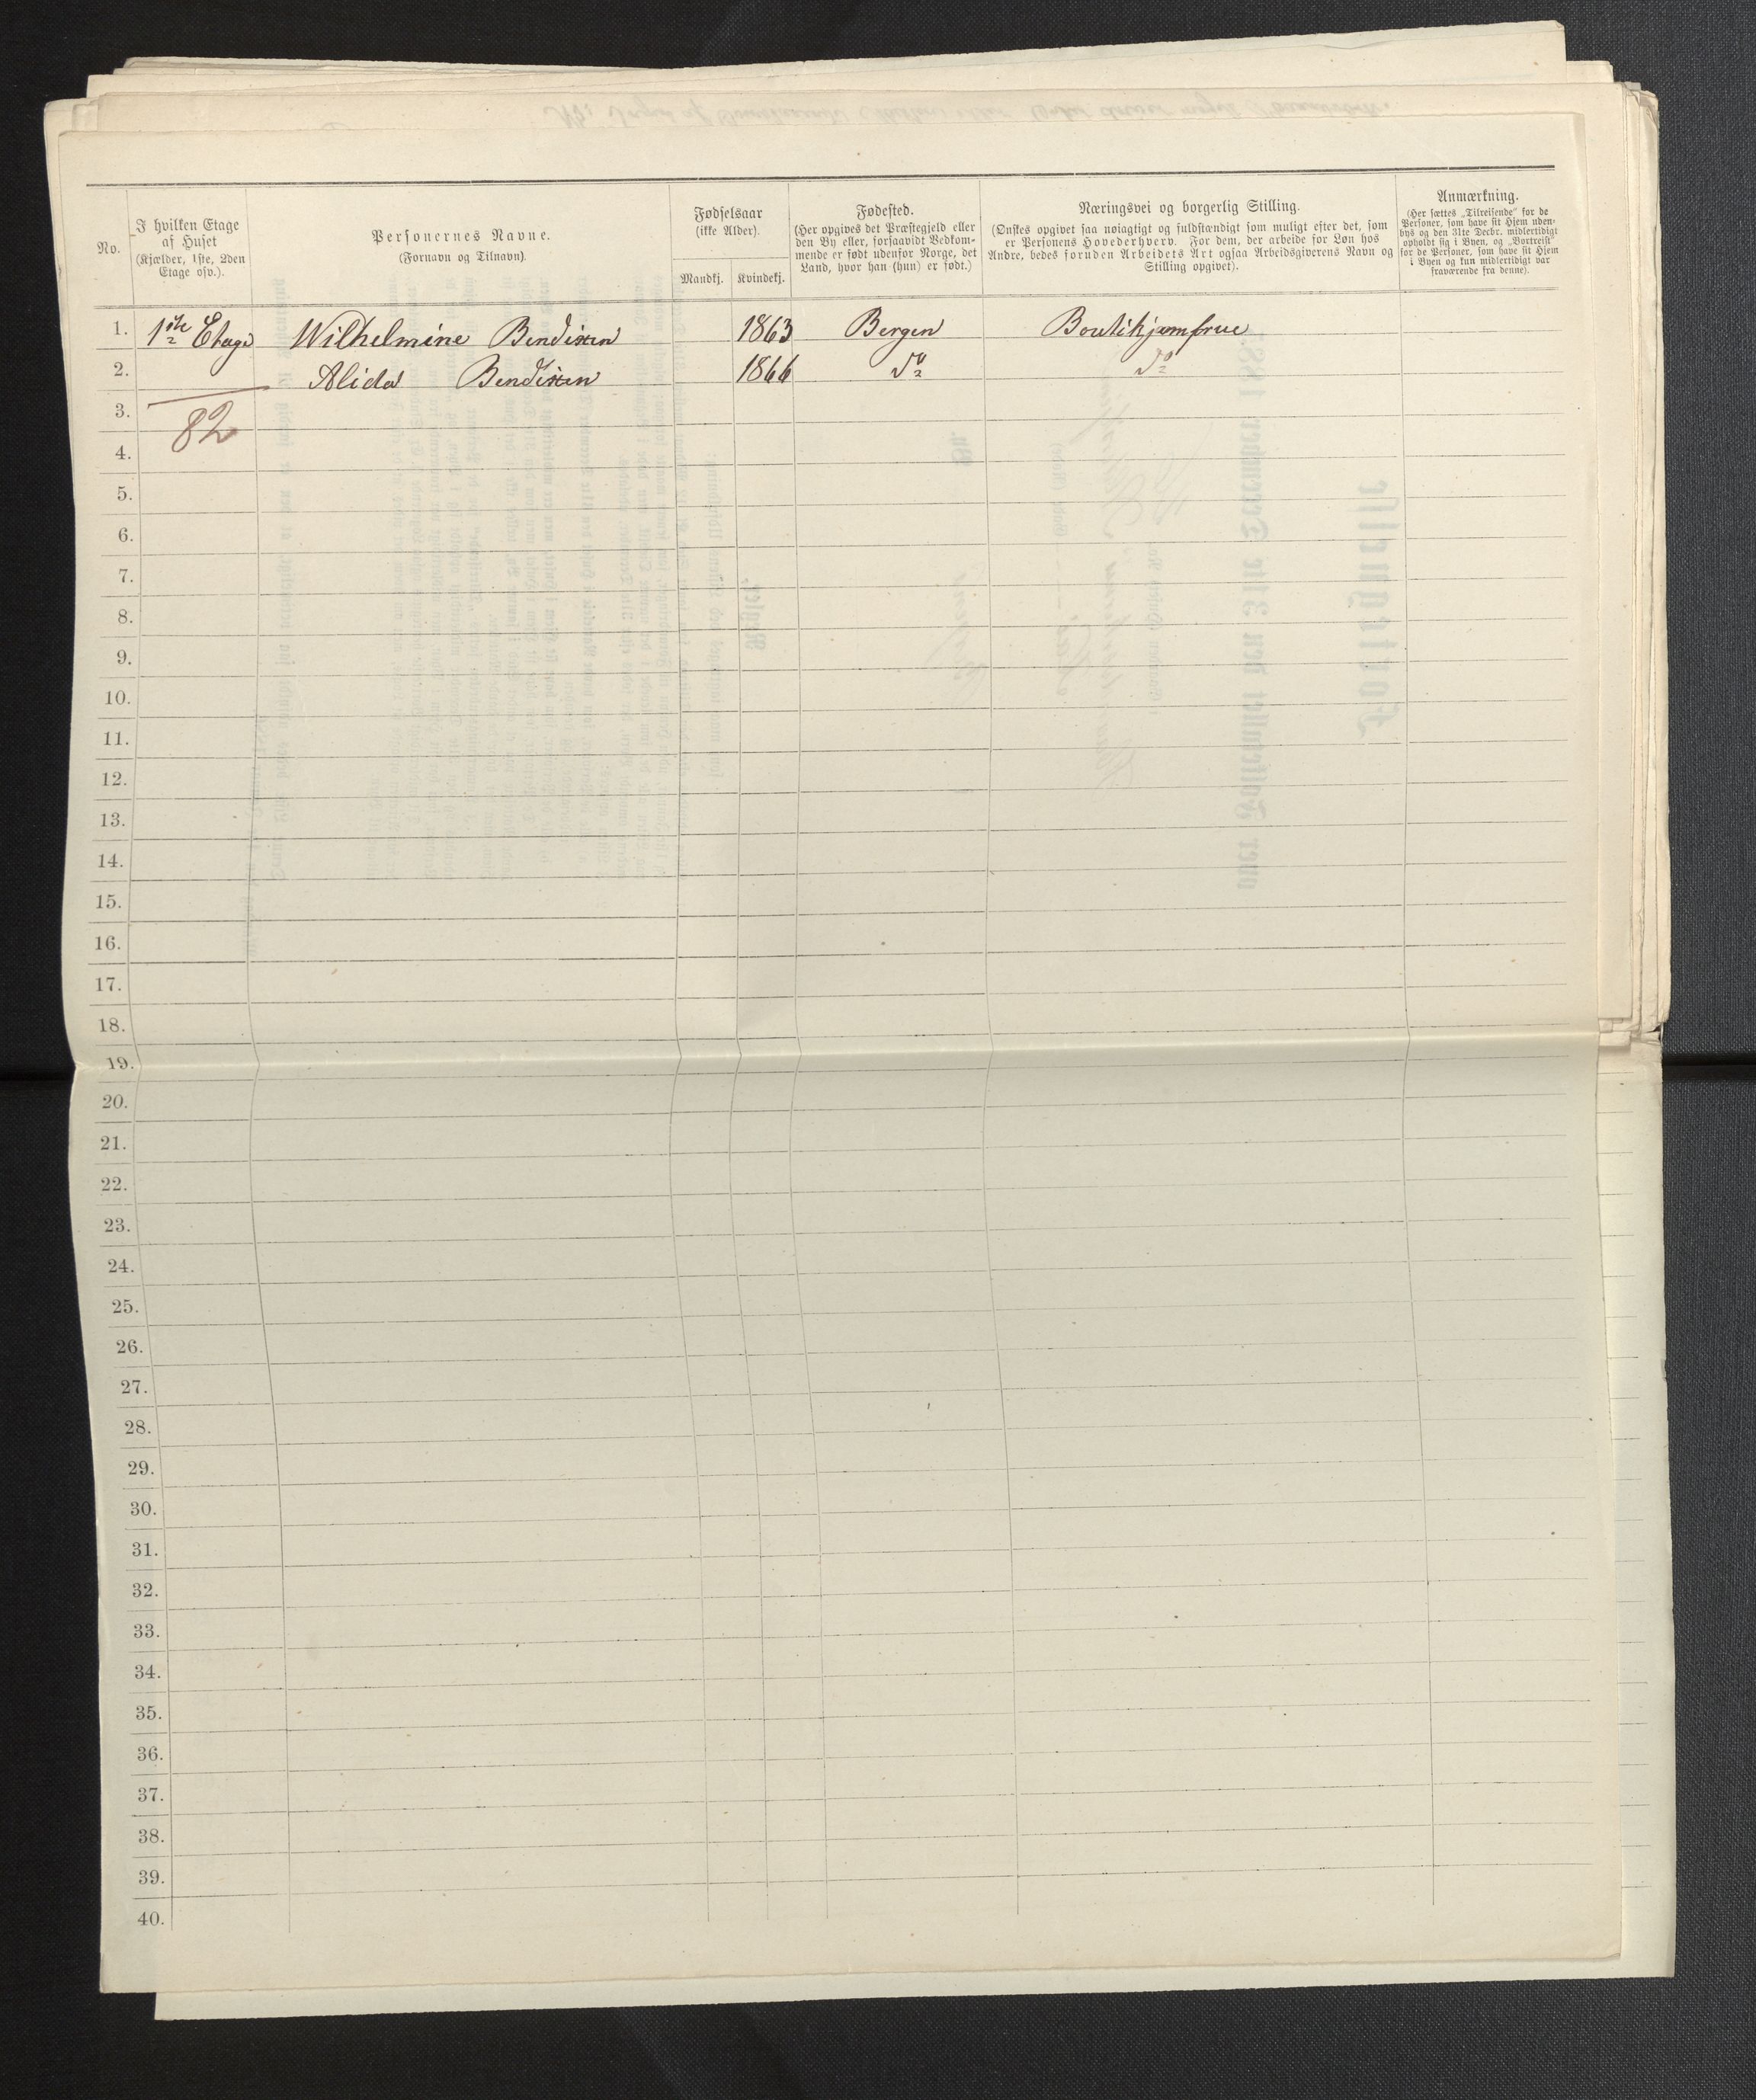 No.
I hvilken Etage
af Huset
(Kjælder, 1ste, 2den
Etage osv.).
Personernes Navne.
(Fornavn og Tilnavn).
Fødselsaar
(ikke Alder).
Mandkj. Kvindekj.
Fødested.
(Her opgives det Præstegjeld eller
den By eller, forsaavidt Vedkom-
mende er født udenfor Norge, det
Land, hvor han (hun) er født.)
Næringsvei og borgerlig Stilling.
(Ønskes opgivet saa nøiagtigt og fuldstændigt som muligt efter det, som
er Personens Hovederhverv. For dem, der arbeide for Løn hos
Andre, bedes foruden Arbeidets Art ogsaa Arbeidsgiverens Navn og
Stilling opgivet).
Anmærkning.
(Her sættes „Tilreisende" for de
Personer, som have sit Hjem uden-
bys og den 31te Decbr. midlertidigt
opholdt sig i Byen, og „Bortreist"
for de Personer, som have sit Hjem
i Byen og kun midlertidigt var
fraværende fra denne).
1. 1ste Etage Wilhelmine Bendixen 1863 Bergen Boutikjomfrue
2. Alida Bendixen 1866 do do
3.
82
4.
5.
6.
7.
8.
9.
10.
11.
12.
13.
14.
15.
16.
17.
18.
19.
20.
21.
22.
23.
24.
25.
26.
27.
28.
29.
30.
31.
32.
33.
34.
35.
36.
37.
38.
39.
40.